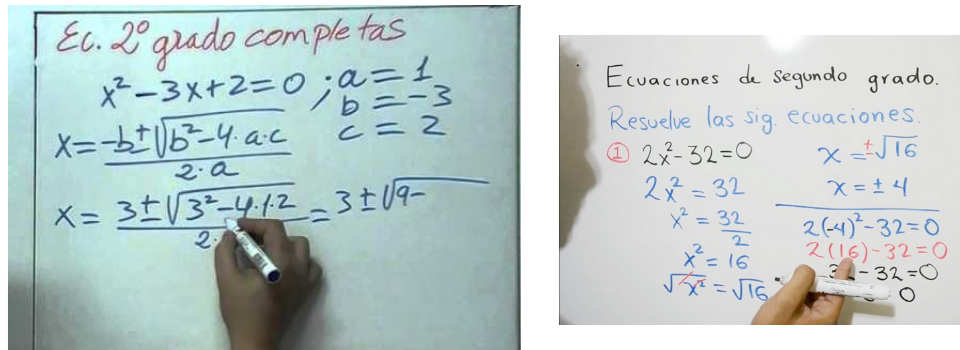 Ec. 2º grado completas
x² - 3x + 2 = 0 ; a = 1
b = -3
c = 2
x = (-b ± √(b² - 4·a·c)) / (2·a)
x = (3 ± √(3² - 4·1·2)) / 2· = 3 ± √(9 -
Ecuaciones de segundo grado.
Resuelve las sig. ecuaciones.
① 2x² - 32 = 0
2x² = 32
x² = 32/2
x² = 16
√x² = √16
x = ±√16
x = ± 4
2(-4)² - 32 = 0
2(16) - 32 = 0
- 32 = 0
0